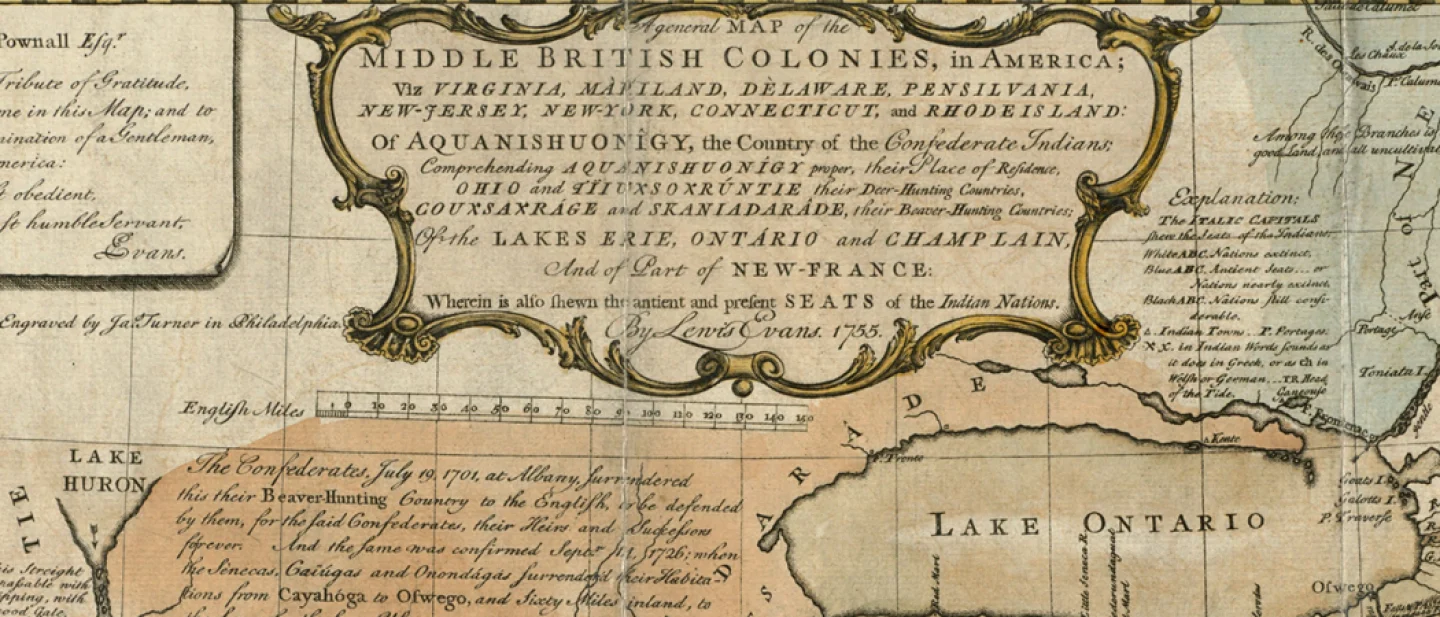 Pownall Esqr.
Tribute of Gratitude,
me in this Map; and to
mination of a Gentleman,
merica:
obedient,
humble Servant,
Evans.
Engraved by Jas. Turner in Philadelphia.
A general MAP of the
MIDDLE BRITISH COLONIES, in AMERICA;
Viz VIRGINIA, MÀRILAND, DÈLAWARE, PENSILVANIA,
NEW-JERSEY, NEW-YORK, CONNECTICUT, and RHODE ISLAND:
Of AQUANISHUONÎGY, the Country of the Confederate Indians;
Comprehending AQUANISHUONÎGY proper, their Place of Residence,
OHIO and TÏIUXSOXRÚNTIE their Deer-Hunting Countries,
COUXSAXRÁGE and SKANIADARÂDE, their Beaver-Hunting Countries;
Of the LAKES ERIE, ONTÁRIO and CHAMPLAIN,
And of Part of NEW-FRANCE:
Wherein is also shewn the antient and present SEATS of the Indian Nations.
By Lewis Evans. 1755.
R. des Outawais
les Chaux
P. Calumet
Among these Branches is
good Land, and all uncultivat
Explanation:
The ITALIC CAPITALS
shew the Seats of the Indians.
White ABC. Nations extinct.
Blue ABC. Antient Seats... or
Nations nearly extinct.
Black ABC. Nations still consi-
derable.
Indian Towns. P. Portages.
X x. in Indian Words sounds as
it does in Greek, or as th in
Welsh or German... T.R. Head
of the Tide.
Part of N E
Portage
Toniata I.
English Miles
0 10 20 30 40 50 60 70 80 90 100 110 120 130 140 150
LAKE
HURON
TIE
The Confederates, July 19, 1701, at Albany, surrendered
this their Beaver-Hunting Country to the English, to be defended
by them, for the said Confederates, their Heirs and Successors
forever. And the same was confirmed Septr. 14, 1726; when
the Sénecas, Caiúgas and Onondágas surrendered their Habita-
tions from Cayahóga to Oswego, and Sixty Miles inland, to
is Streight
passable with
ping, with
good Gale.
S D A R Â D E
Kente
LAKE ONTARIO
Goats I.
Galotts I.
P. Traverse
Oswego
Red Mart
Little Seneca R.